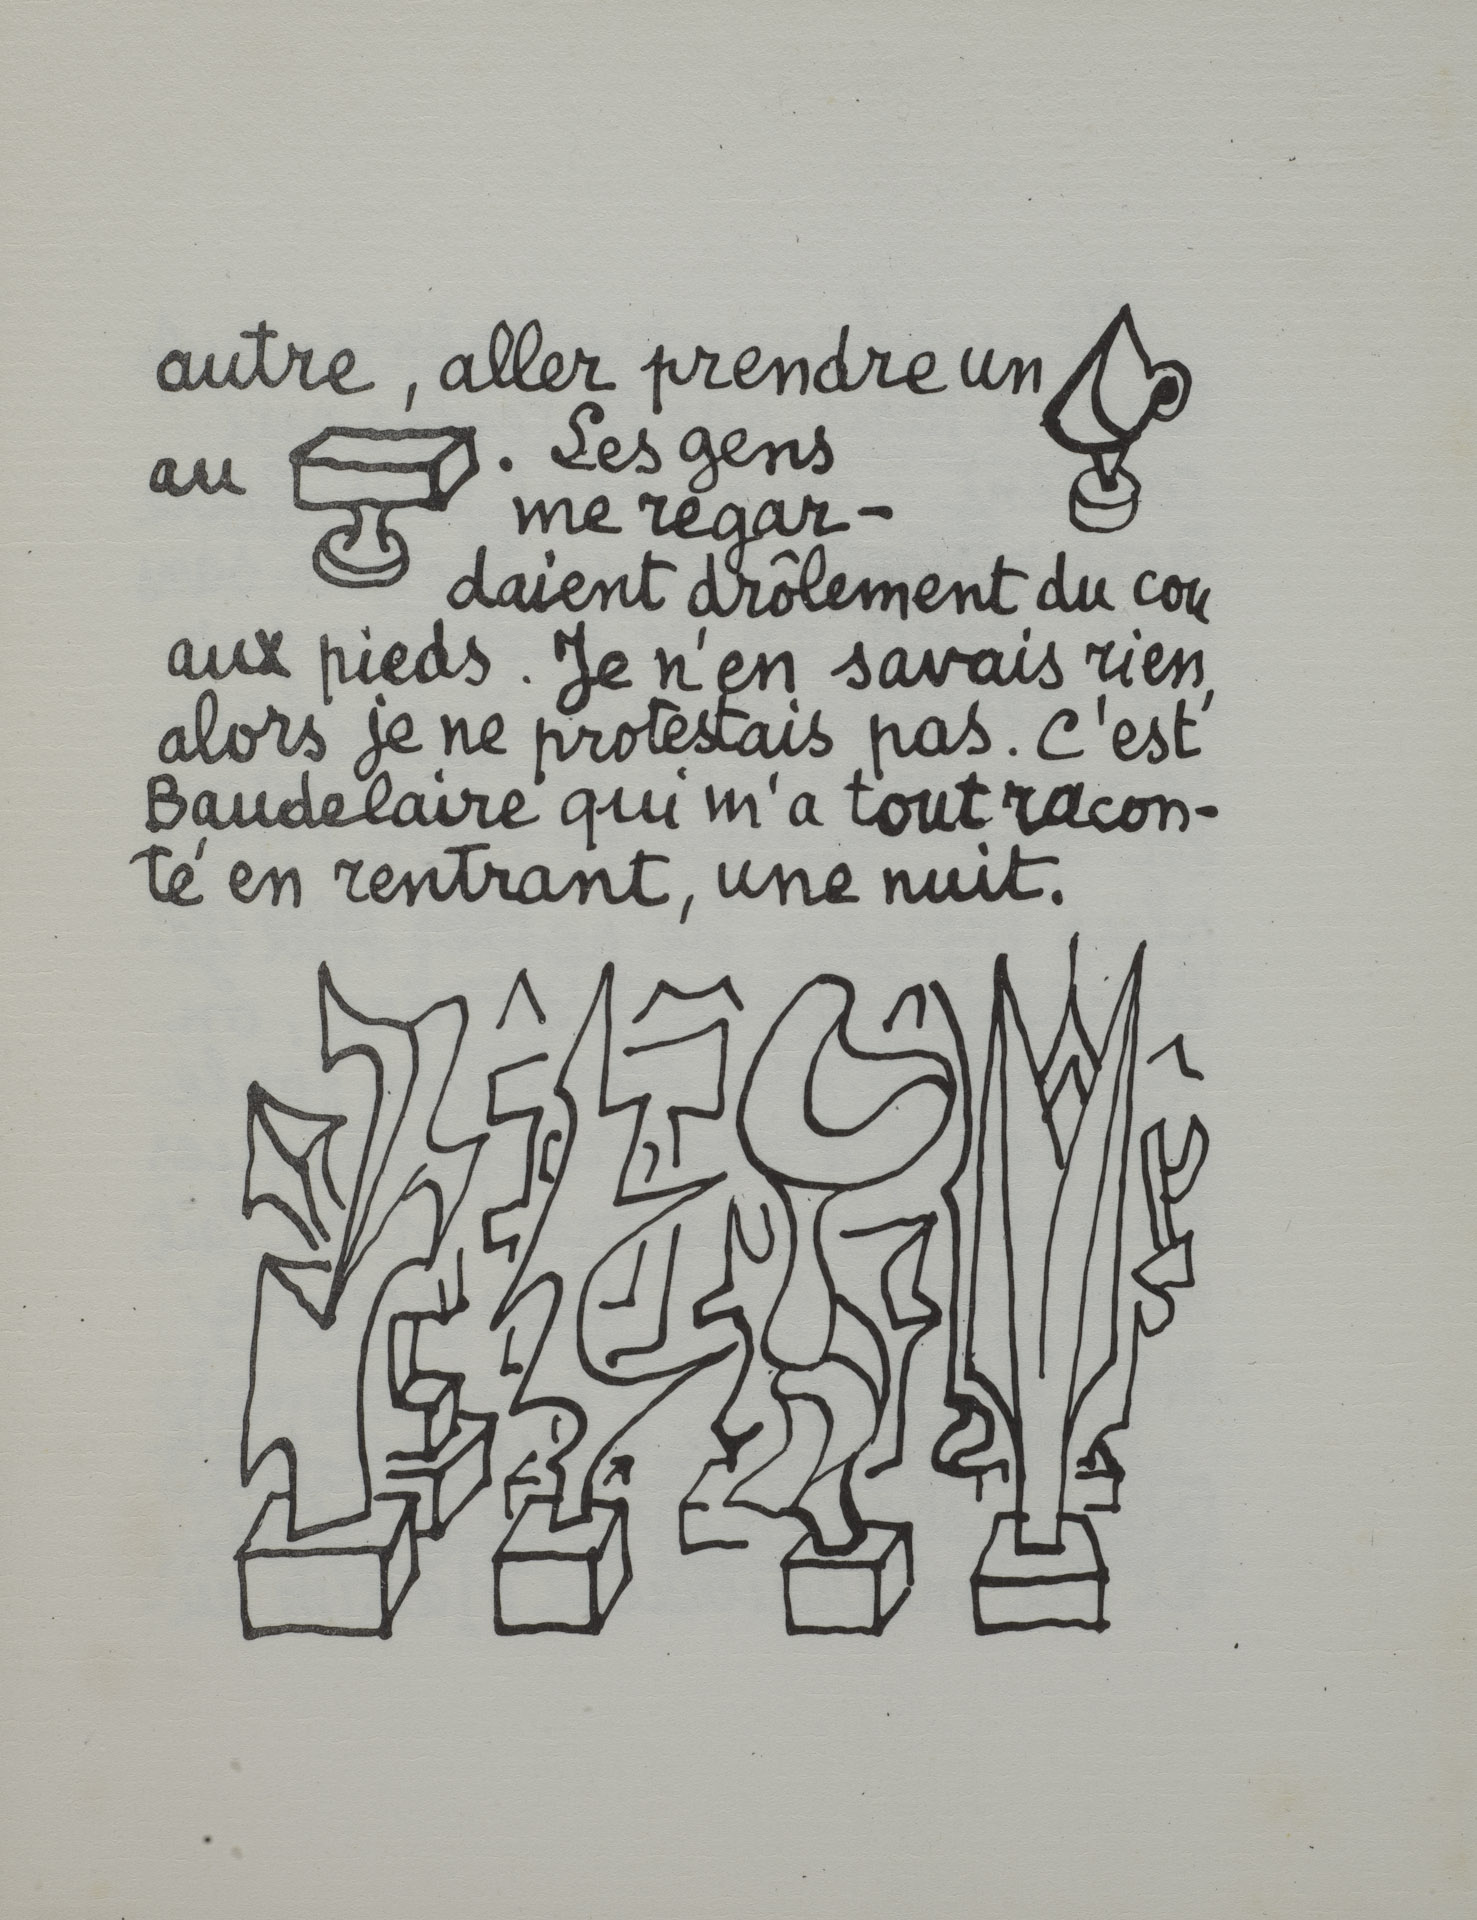 autre, aller prendre un
au . Les gens
me regar-
daient drôlement du cou
aux pieds. Je n'en savais rien,
alors je ne protestais pas. C'est
Baudelaire qui m'a tout racon-
té en rentrant, une nuit.